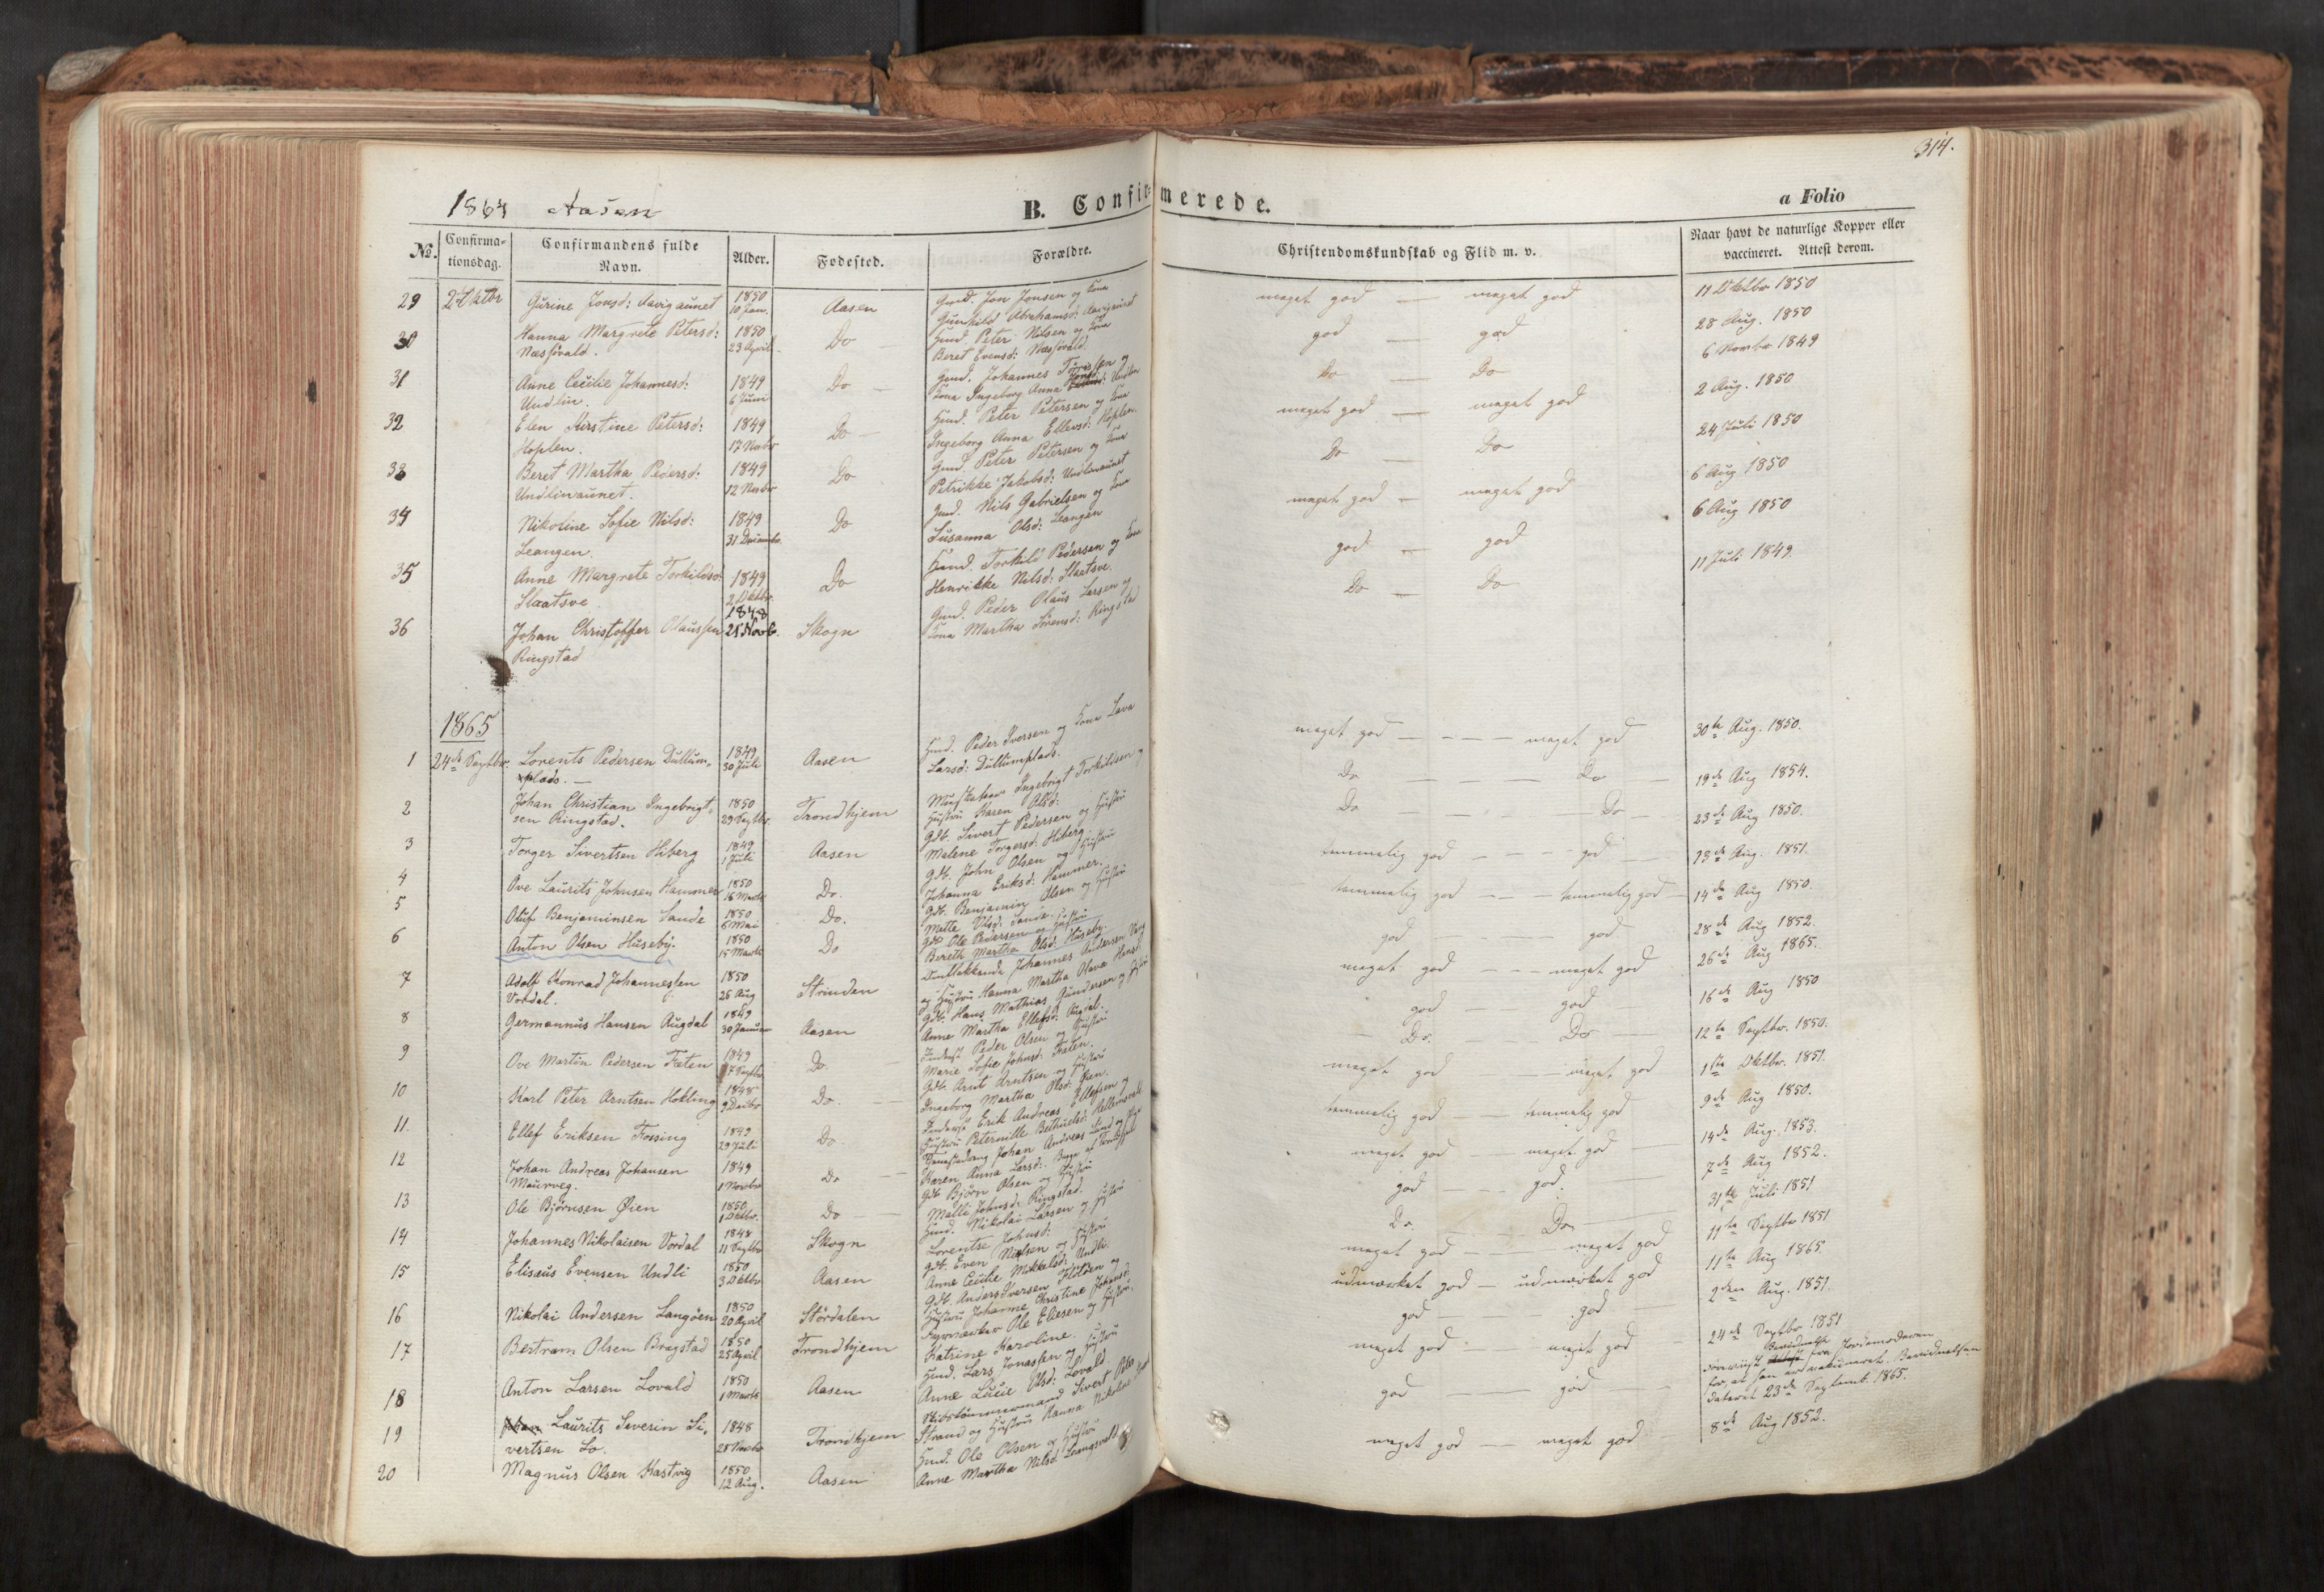 314.
1864 Aasen
B. Confirmerede.
a Folio
No. Confirmationsdag. Confirmandens fulde Navn. Alder. Fødested. Forældre. Christendomskundskab og Flid m. v. Naar havt de naturlige Kopper eller vaccineret. Attest derom.
29 2 Oktbr Gurine Jonsd: Aavigaunet 1850 10 Jan. Aasen Gmd. Jon Jonsen og Kone Gunhild Abrahamsd: Aavigaunet meget god — meget god 11 Oktbr 1850
30 Hanna Margrete Petersd: Næssvald. 1850 23 April Do Hmd. Peter Nilsen og Kone Beret Evensd: Næssvald. god — god 28 Aug. 1850
31 Anne Cecilie Johannesd: Undlin. 1849 6 Juni Do Gmd. Johannes og Kone Ingeborg Anna Undlin Do — Do 6 Novbr 1849
32 Elen Kirstine Petersd: Hoplen. 1849 17 Novbr Do Hmd. Peter Petersen og Kone Ingeborg Anna Ellevsd: Hoplen. meget god — meget god 2 Aug. 1850
33 Beret Martha Pedersd: Undlinaunet. 1849 12 Novbr Do Gmd. Peter Petersen og Kone Petrikke Jakobsd: Undlinaunet Do — Do 24 Juli 1850
34 Nikoline Sofie Nilsd: Leangen. 1849 31 Decembr. Do Gmd. Nils Gabrielsen og Kone Susanna Olsd: Leangen meget god — meget god 6 Aug 1850
35 Anne Margrete Torkildsd: Slaatsve 1849 2 Oktbr. Do Hmd. Torkild Pedersen og Kone Henrikke Nilsd: Slaatsve. god — god 6 Aug 1850
36 Johan Christoffer Olaussen Ringstad 1848 25 Novb. Skogn Gmd. Peder Olaus Larsen og Kone Martha Sørensd: Ringstad Do — Do 11 Juli 1849.
1865
1 24de Septbr. Lorents Pedersen Dullum-plads. — 1849 30 Juli Aasen Hmd. Peder Iversen og Kone Lava Larsd: Dullumplads. meget god — — — meget god 30te Aug. 1850.
2 Johan Christian Ingebrigt-sen Ringstad. 1850 29 Septbr. Trondhjem Ingebrigt Torkildsen og Hustru Karen Olsd: Do — — Do — 19de Aug 1854.
3 Torger Sivertsen Hiberg 1849 1 Juli Aasen Gdb. Sivert Pedersen og Hustru Malene Torgersd: Hiberg. Do — — Do — 23de Aug 1850.
4 Ove Laurits Johnsen Hammer 1850 16 Marts Do. Gdb. John Olsen og Hustru Johanna Eriksd: Hammer. temmelig god — — — god 23de Aug. 1851.
5 Oluf Benjaminsen Sande 1850 6 Mai Do. Gdb. Benjamin Olsen og Hustru Mette Olsd: Sande. temmelig god — — temmelig god 14de Aug 1850.
6 Anton Olsen Huseby. 1850 15 Marts Do Gdb Ole Pedersen og Hustru Bereth Martha Olsd: Huseby. god — — god 28de Aug 1852.
7 Adolf Konrad Johannessen Vordal. 1850 26 Aug Strinden Johannes Andersen og Hustru Hanna Martha Olava Hansd. meget god — — meget god 26de Aug 1865.
8 Germannus Hansen Augdal 1849 30 Januar Aasen Gdb. Hans Mathias Gundersen og Hustru Anne Martha Ellefsd: Augdal. god — god 16de Aug 1850
9 Ove Martin Pedersen Fæten 1849 7 Septbr. Do. Inderst Peder Olsen og Hustru Marie Sofie Johnsd: Fæten. Do. — Do 12te Septbr. 1850.
10 Karl Peter Arntsen Hokling 1848 9 Decbr Do. Gdb. Arnt Arntsen og Hustru Ingeborg Martha Olsd: Øien. meget god — meget god 1ste Oktbr. 1851.
11. Ellef Eriksen Fossing 1849 29 Juli Do. Inderst Erik Andreas Ellefsen og Hustru Peternille Bethuelsd: temmelig god — temmelig god 9de Aug 1850.
12 Johan Andreas Johansen Maurveg. 1849 1 Novbr Do Johan Andreas Lund og Karen Anna Larsd: meget god — meget god 14de Aug. 1853.
13 Ole Bjørnsen Øien 1850 1 Oktbr. Do Gdb Bjørn Olsen og Hustru Malli Johnsd: Ringstad. god — god. 7de Aug 1852.
14 Johannes Nikolaisen Vordal 1848 11 Septbr Skogn Hmd. Nikolai Larsen og Hustru Lorentse Johnsd: Do. — Do. 31te Juli 1851
15 Elisæus Evensen Undli 1850 3 Oktbr Aasen Gdb. Even Nielsen og Hustru Anne Cecilie Mikkelsd: Undli. meget god — meget god 11te Septbr 1851
16 Nikolai Andersen Langøen 1850 20 April Stördalen Gdb. Anders Iversen og Hustru Johanne Christine Johansd: udmærket god — udmærket god 11te Aug 1865.
17 Bertram Olsen Bragstad 1850 25 April Trondhjem Fyrværker Ole Ellesen og Hustru Katrine Karoline. god — god 2den Aug. 1851.
18 Anton Larsen Lovald 1850 1 Marts Aasen Hmd. Lars Jonassen og Hustru Anne Lucie Olsd: Lovald. meget god — meget god 24de Septbr 1851
19 Laurits Severin Si-vertsen Lo. 1848 28 Novbr Trondhjem Skibstømmermand Sivert Strand og Hustru Hanna Nikoline god — god forevist Bevidnelse fra Jordemoderen for, at han er vakcineret. Bevidnelsen dateret 23de Septemb. 1865.
20 Magnus Olsen Hastvig 1850 12 Aug. Aasen Hmd. Ole Olsen og Hustru Anne Martha Nilsd: Leangsvald meget god — meget god 8de Aug 1852.